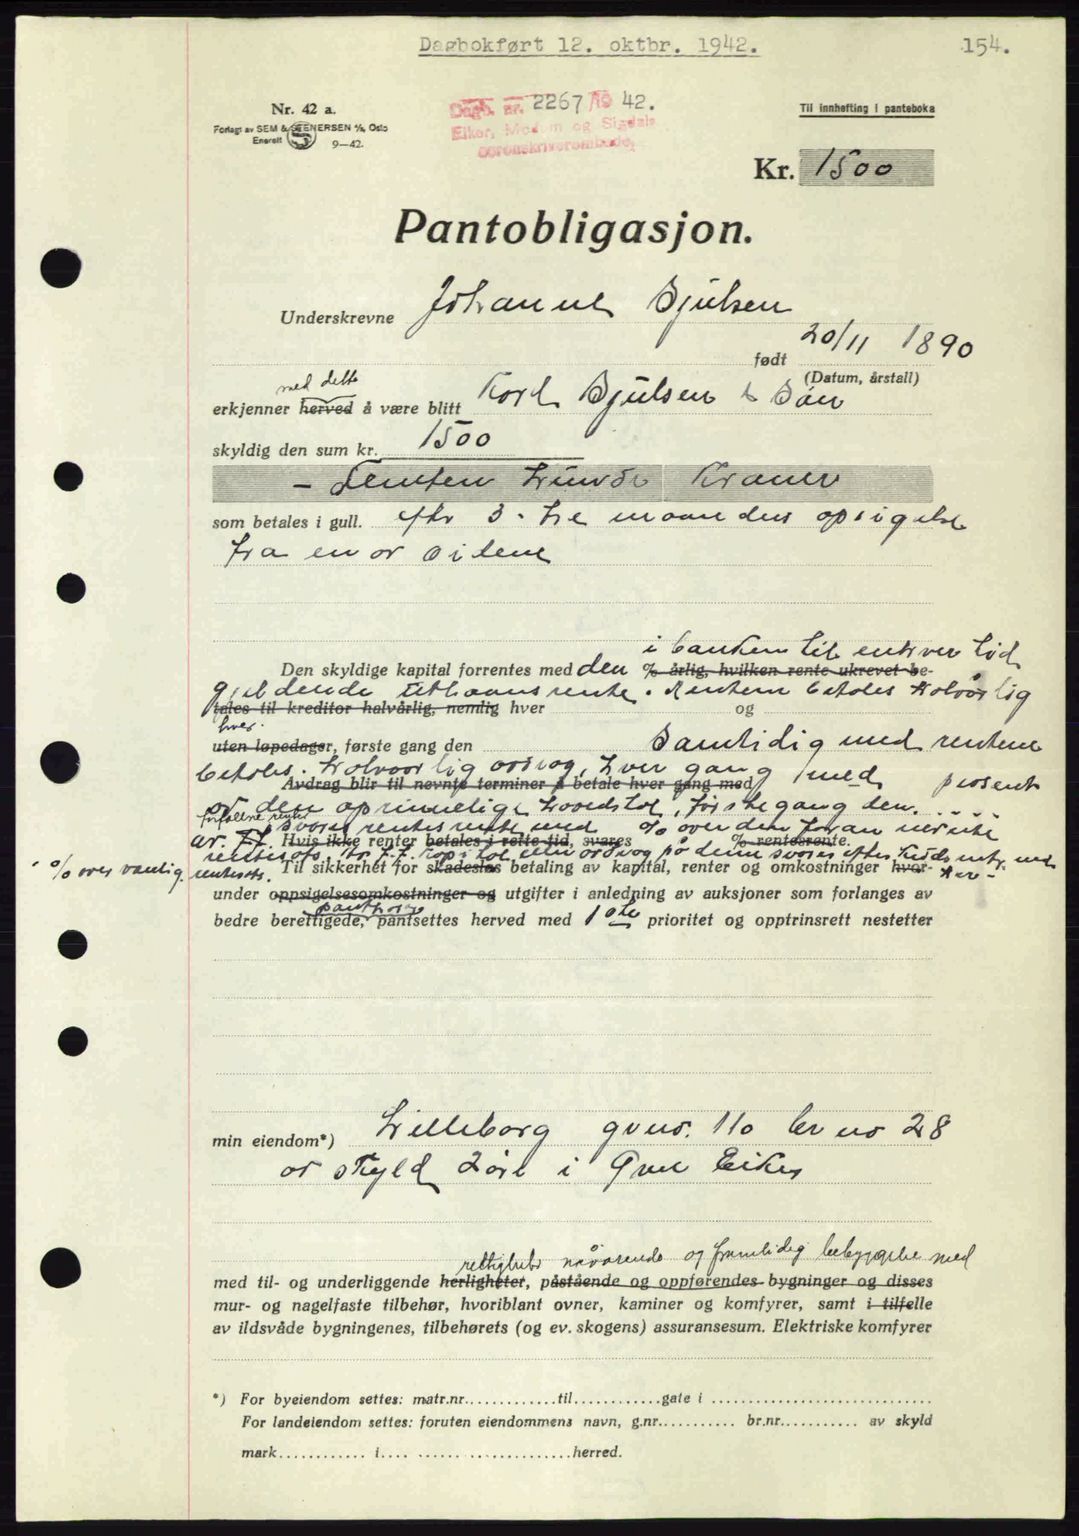 Dagbokført 12. oktbr. 1942.
154.
Nr. 42 a.
Forlagt av SEM & STENERSEN A/S, Oslo
Enerett 9-42.
Dagb. nr. 2267/19 42.
Eiker, Modum og Sigdals
sorenskriverembede,
Til innhefting i panteboka
Kr. 1500
Pantobligasjon.
Underskrevne Johannes Bjulsen
født 20/11 1890
(Datum, årstall)
med dette
erkjenner herved å være blitt Karl Bjulsen & Søn
skyldig den sum kr. 1500
- Femten Hundre Kroner
som betales i gull. efter 3 - tre maaneders opsigelse
fra en av sidene
i banken til enhver tid
Den skyldige kapital forrentes med den % årlig, hvilken rente ukrevet be-
gjeldende utlaansrente. Rentene betales halvårlig
tales til kreditor halvårlig, nemlig hver og
hver
uten løpedager, første gang den Samtidig med rentene
betales halvaarlig avdrag, hver gang med prosent
Avdrag blir til nevnte terminer å betale hver gang med
av den oprinnelige hovedstol, første gang den .....
forfallne renter
svares rentesrente med % over den foran nevnte
Hvis ikke renter betales i rette tid, svares % renteerente.
% over vanlig
rentesats.
Til sikkerhet for skadesløs betaling av kapital, renter og omkostninger hvor-
under oppsigelsesomkostninger og utgifter i anledning av auksjoner som forlanges av
panthavere
bedre berettigede, pantsettes herved med 1ste prioritet og opptrinsrett nestetter
min eiendom*) Lilleborg gnr. 110 br no 28
av skyld 2 øre i Øvre Eiker
rettigheter nåværende og framtidig bebyggelse med
med til- og underliggende herligheter, påstående og oppførendes bygninger og disses
mur- og nagelfaste tilbehør, hvoriblant ovner, kaminer og komfyrer, samt i tilfelle
av ildsvåde bygningenes, tilbehørets (og ev. skogens) assuransesum. Elektriske komfyrer
*) For byeiendom settes: matr.nr..............til............gate i ..............................
For landeiendom settes: foruten eiendommens navn, g.nr........... br.nr........... av skyld
mark............ i.... ...... ................herred.